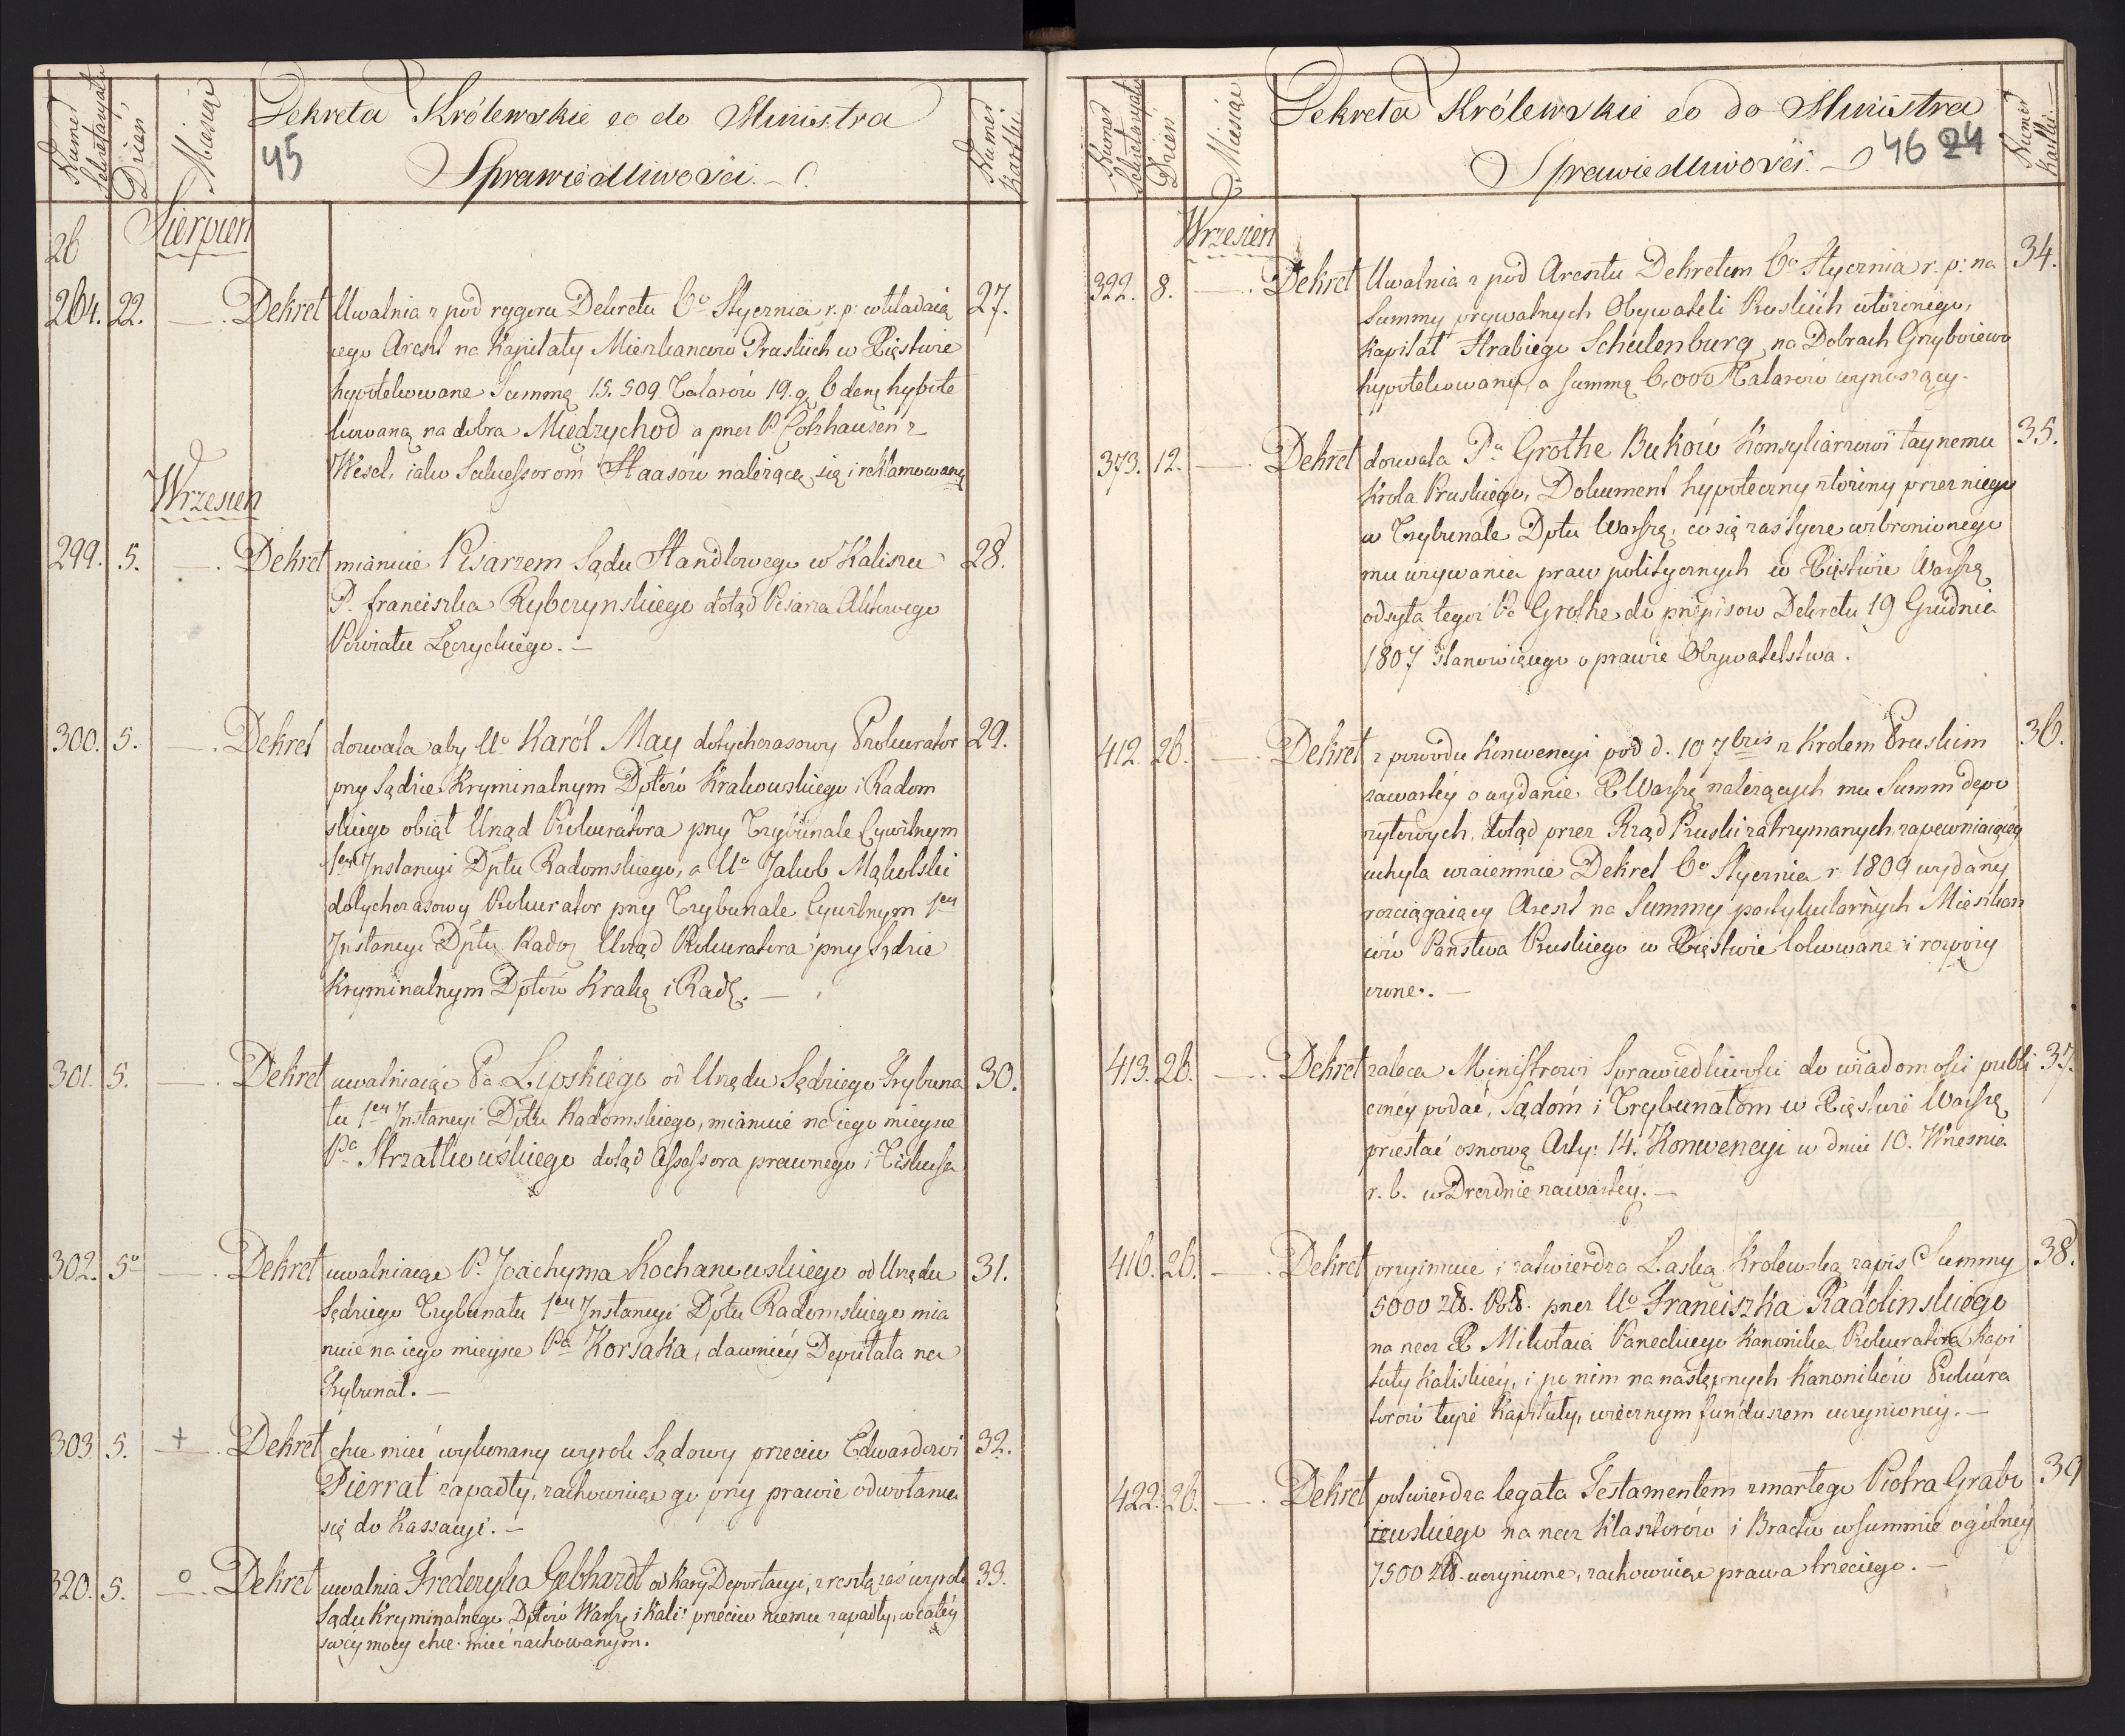 Numer Sekretaryatu
Dzień
Miesiąc
Dekreta Królewskie co do Ministra
45
Sprawiedliwości. –
Numer Kartki
26
Sierpień
264. 22. — Dekret Uwalnia z pod rygoru Dekretu 6º Stycznia r. p: wkładaią 27.
cego Areszt na Kapitały Mieszkancow Pruskich w Xięstwie
hypotekowane Summę 15.509 Talarów 19. g. 6 den: hypote
kowaną na dobra Międzychod a przez P. Colzhausen z
Wesel, iako Sukcessorom Haasów należącą się i reklamowaną
Wrzesień
299. 5. — Dekret mianuie Pisarzem Sądu Handlowego w Kaliszu 28.
P. Franciszka Rybczynskiego dotąd Pisarza Aktowego
Powiatu Łęczyckiego. –
300. 5. — Dekret dozwala aby Uº Karól May dotychczasowy Prokurator 29.
przy Sądzie Kryminalnym Dptów Krakowskiego i Radom
skiego obiął Urząd Prokuratora przy Trybunale Cywilnym
1ey Instancyi Dptu Radomskiego, a Uº Jakub Mąkolski
dotychczasowy Prokurator przy Trybunale Cywilnym 1ey
Instancyi Dptu Rado: Urząd Prokuratora przy Sądzie
Kryminalnym Dptów Krak: i Rad: –
301. 5. — Dekret uwalniaiąc Pa Lipskiego od Urzędu Sędziego Trybuna 30.
łu 1ey Instancyi Dptu Radomskiego, mianuie na iego mieysce
Pa Strzałkowskiego dotąd Assessora prawnego i Fiskusa
302. 5º — Dekret uwalniaiąc P. Joachyma Kochanowskiego od Urzędu 31.
Sędziego Trybunału 1ey Instancyi Dptu Radomskiego mia
nuie na iego mieysce Pa Korsaka, dawniéy Deputata na
Trybunał. –
303. 5. + Dekret chce mieć wykonany wyrok Sądowy przeciw Edwardowi 32.
Pierrat zapadły, zachowuiąc go przy prawie odwołania
się do Kassacyi. –
320. 5. o Dekret uwalnia Fryderyka Gebhardt od kary Deportacyi, z resztą zaś wyrok 33.
Sądu Kryminalnego Dptów Warsz: i Kali: przeciw niemu zapadły, w całéy
swéy mocy chce mieć zachowanym.
Numer Sekretaryatu
Dzień
Miesiąc
Dekreta Królewskie co do Ministra
Sprawiedliwości. – 46 24
Numer Kartki
Wrzesień
322. 8. — Dekret Uwalnia z pod Aresztu Dekretem 6º Stycznia r. p: na 34.
Summy prywatnych Obywateli Pruskich włożonego,
Kapitał Hrabiego Schulenburg na Dobrach Grzyboiewo
hypotekowany, a summę 6.000 Talarów wynoszący.
373. 12. — Dekret dozwala Pu Grothe Buków Konsyliarzowi taynemu 35.
Króla Pruskiego, Dokument hypoteczny złożony przez niego
w Trybunale Dptu Warsz: co się zas tycze wzbronionego
mu używania praw politycznych w Xięstwie Warsz:
odsyła tegoż Pa Grothe do przepisow Dekretu 19 Grudnia
1807 stanowiącego o prawie Obywatelstwa.
412. 26. — Dekret z powodu Konwencyi pod d. 10 7bris z Krolem Pruskim 36.
zawartéy o wydanie X Warsz: należących mu Summ depo
zytowych, dotąd przez Rząd Pruski zatrzymanych, zapewniaiącéy
uchyla wzaiemnie Dekret 6º Stycznia r 1809 wydany
rozciągaiący Areszt na Summy partykularnych Mieszkań
ców Państwa Pruskiego w Xięstwie lokowane i rozpoży
czone. –
413. 26. — Dekret zaleca Ministrowi Sprawiedliwości do wiadomości publi 37.
cznéy podać, Sądóm i Trybunałom w Xięstwie Warsz:
przesłać osnowę Arty: 14. Konwencyi w dniu 10. Wrzesnia
r. b. w Dreznie zawartéy. –
416. 26. — Dekret przyimuie i zatwierdza Łaską Krolewską zapis Summy 38.
5000 zł. Pol. przez Uº Franciszka Radolinskiego
na rzecz X Mikołaia Paneckiego Kanonika Prokuratora Kapi
tuły Kaliskiéy, i po nim na następnych Kanoników Prokura
torów teyże Kapituły, wiecznym funduszem uczynioney. –
422. 26. — Dekret potwierdza legata Testamentem zmarłego Piotra Grabo 39
iewskiego na rzecz Klasztorów i Bractw w summie ogólnéy
7500 zł. uczynione, zachowuiąc prawa trzeciego. –